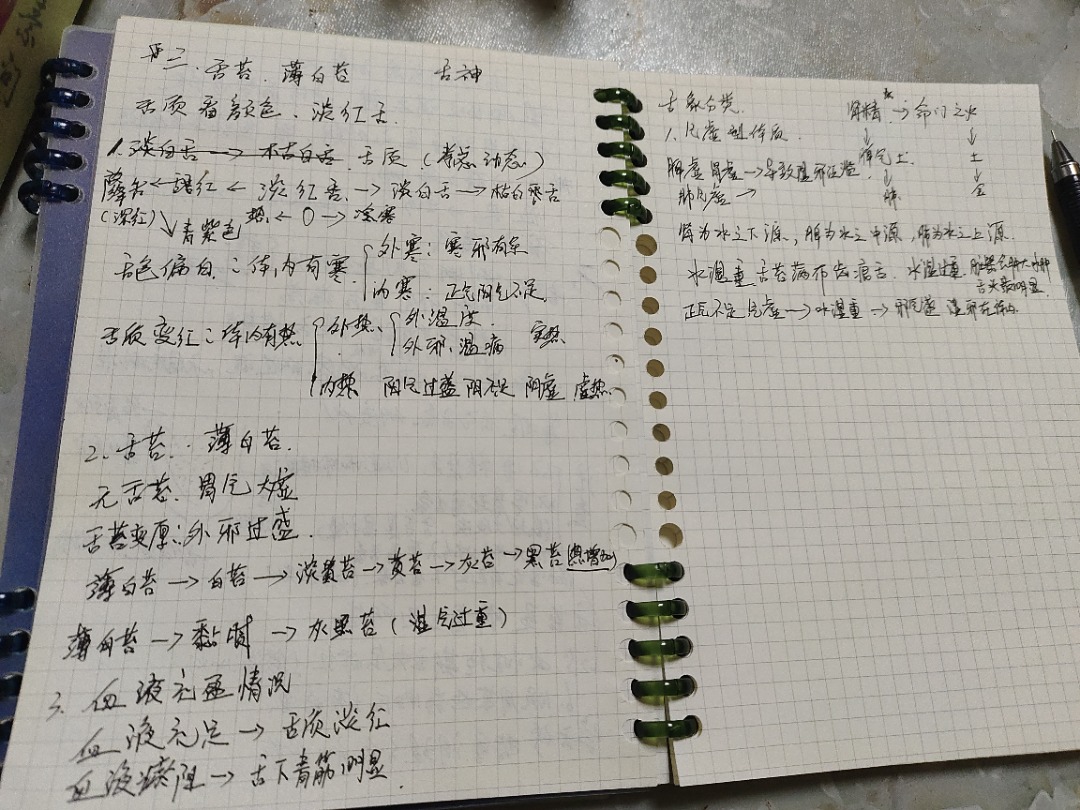 三、舌苔. 薄白苔 舌神
舌质看颜色、淡红舌.
1. 淡白舌→枯白舌 舌质 (考虑动态)
绛舌←绛红←淡红舌→淡白舌→枯白萎舌
(深红)↘青紫色 热←0→冷寒
舌色偏白:体内有寒 外寒: 寒邪有余
内寒: 正气阳气不足.
舌质变红:体内有热 外热. 外温度.
外邪、温病 实热
内热 阳气过盛 阴不足 阴虚 虚热.
2. 舌苔. 薄白苔.
无舌苔. 胃气大虚
舌苔变厚: 外邪过盛.
薄白苔→白苔→淡黄苔→黄苔→灰苔→黑苔 (热增加)
薄白苔→黏腻→灰黑苔 (湿气过重)
3. 血液充盈情况
血液充足→舌质淡红
血液瘀阻→舌下青筋明显.
舌象分类. 肾精→命门之火
1. 气虚型体质. ↓ ↓
脾虚胃虚→导致湿邪泛滥 脾气土. 土
肺气虚→ 肺 金
肾为水之下源, 脾为水之中源, 肺为水之上源.
水湿重舌苔满布齿痕舌. 水湿过重
舌头
正气不足气虚→水湿重→